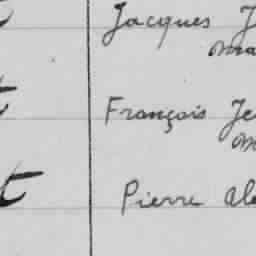 t Jacques J
ma
t François Je
m
t Pierre Al